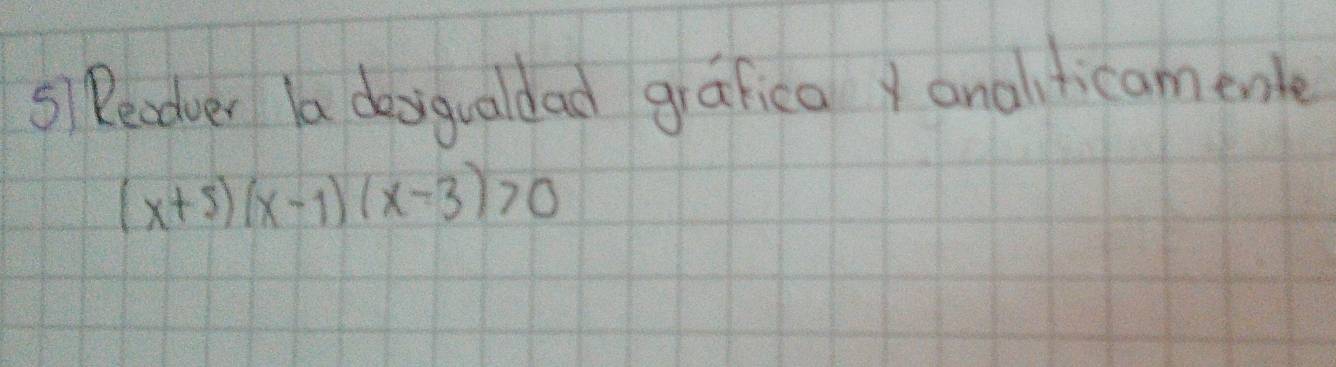 5) Resolver la desigualdad gráfica y analiticamente
(x+5)(x-1)(x-3)>0